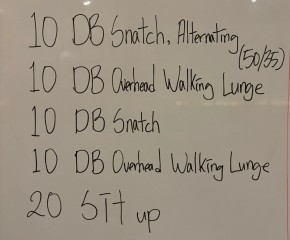 10 DB Snatch, Alternating
(50/35)
10 DB Overhead Walking Lunge
10 DB Snatch
10 DB Overhead Walking Lunge
20 SIt up